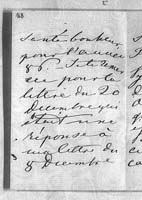 48
santé bonheur
pour l'année
86. Je te remer
cie pour ta
lettre du 20
Décembre qui
était une
réponse à
ma lettre du
8 Décembre